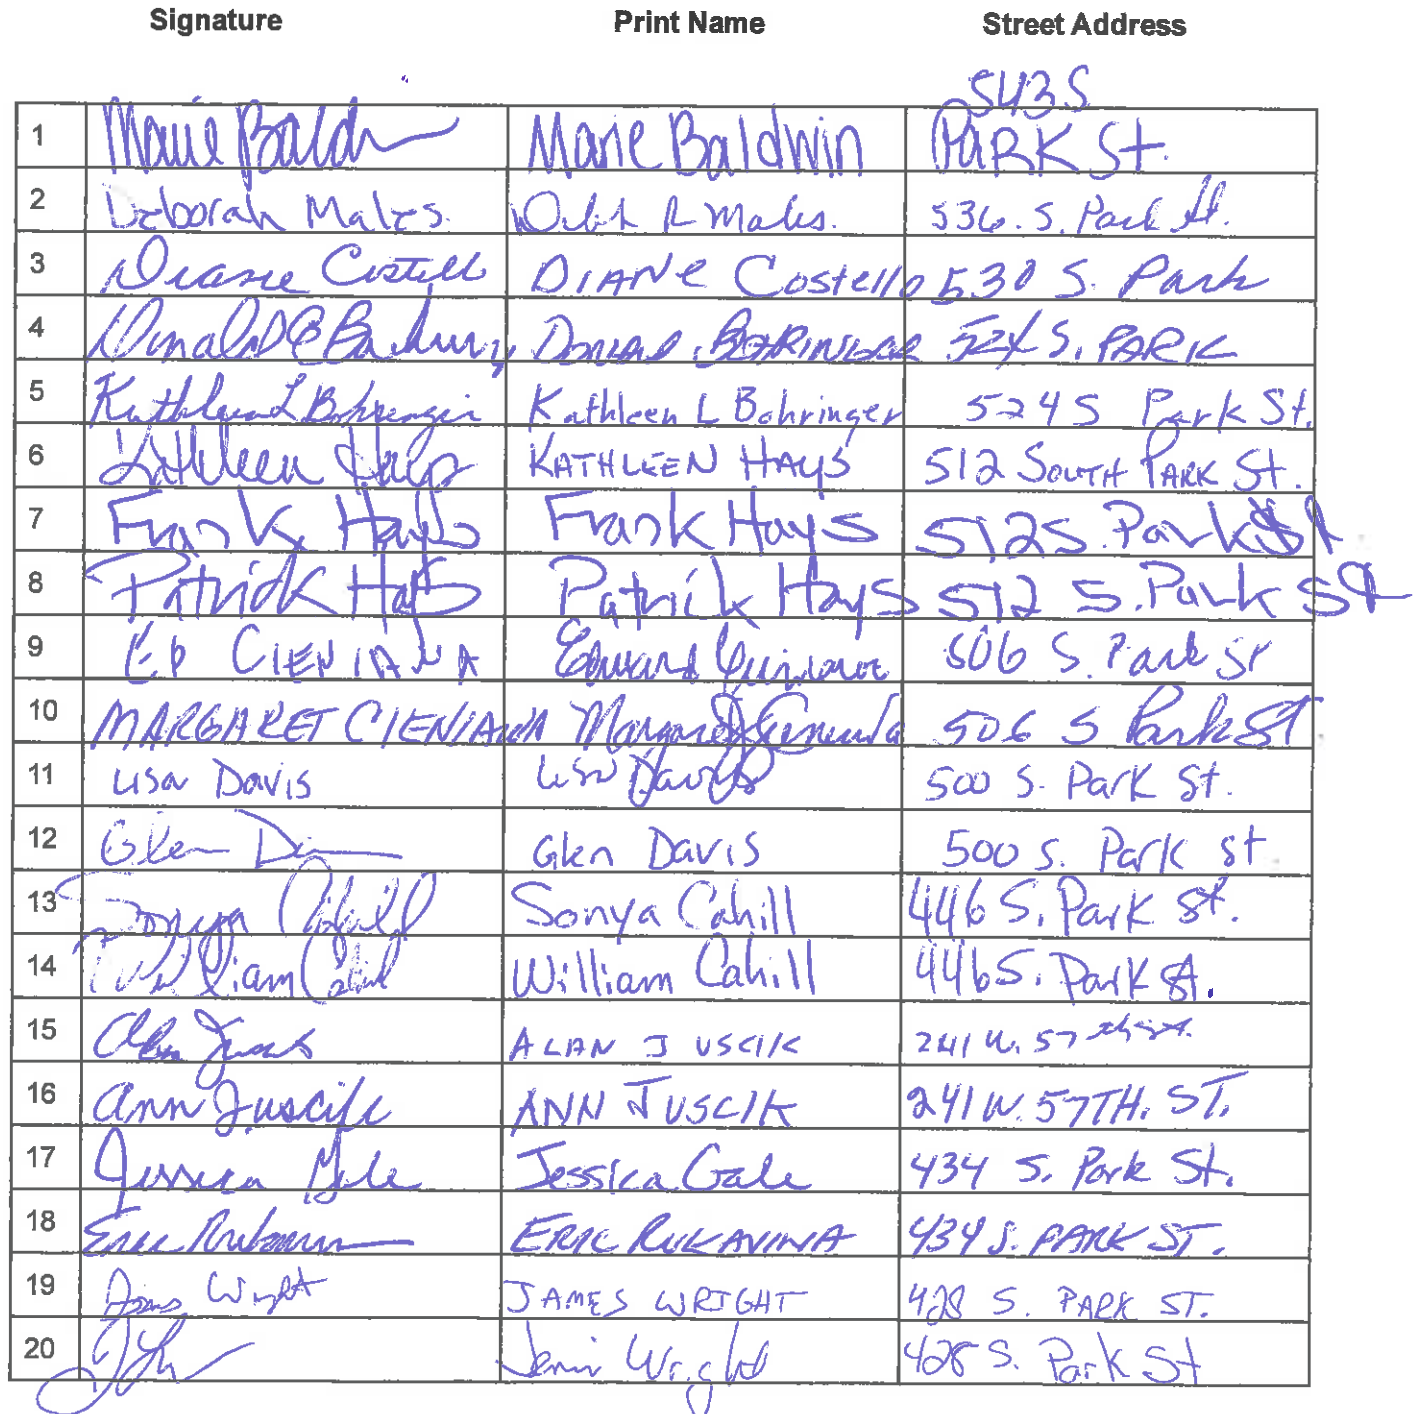 Signature Print Name Street Address
543 S
1 Marie Bald Marie Baldwin PARK St.
2 Deborah Males. R Males. 536. S. Park St.
3 Diane Costello DIANE Costello 530 S. Park
4 Donald 524 S. PARK
5 Kathleen L Bohringer Kathleen L Bohringer 524 S Park St.
6 Kathleen Hays KATHLEEN HAYS 512 SOUTH PARK St.
7 Frank Hays Frank Hays 512 S. Park St
8 Patrick Hays Patrick Hays 512 S. Park St
9 ED CIENIAWA Edward 506 S. Park St
10 MARGARET CIENIAWA Margaret 506 S Park ST
11 Lisa Davis Lisa Davis 500 S. Park St.
12 Glen Glen Davis 500 S. Park st
13 Sonya Cahill Sonya Cahill 446 S. Park St.
14 William Cahill William Cahill 446 S. Park St.
15 Alan Juscik ALAN JUSCIK 241 W. 57th St.
16 Ann Juscik ANN JUSCIK 241 W. 57TH. ST.
17 Jessica Gale Jessica Gale 434 S. Park St.
18 Eric ERIC RUKAVINA 434 S. PARK ST.
19 James Wright JAMES WRIGHT 428 S. PARK ST.
20 Wright 428 S. Park St